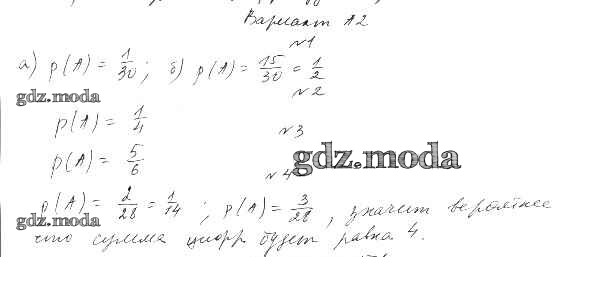 Вариант А2
№1
а) p(A) = 1/30; б) p(A) = 15/30 = 1/2
gdz.moda
№2
p(A) = 1/4
№3
p(A) = 5/6
gdz.moda
№4
p(A) = 2/28 = 1/14; p(A) = 3/28, значит вероятнее
gdz.moda
что сумма цифр будет равна 4.